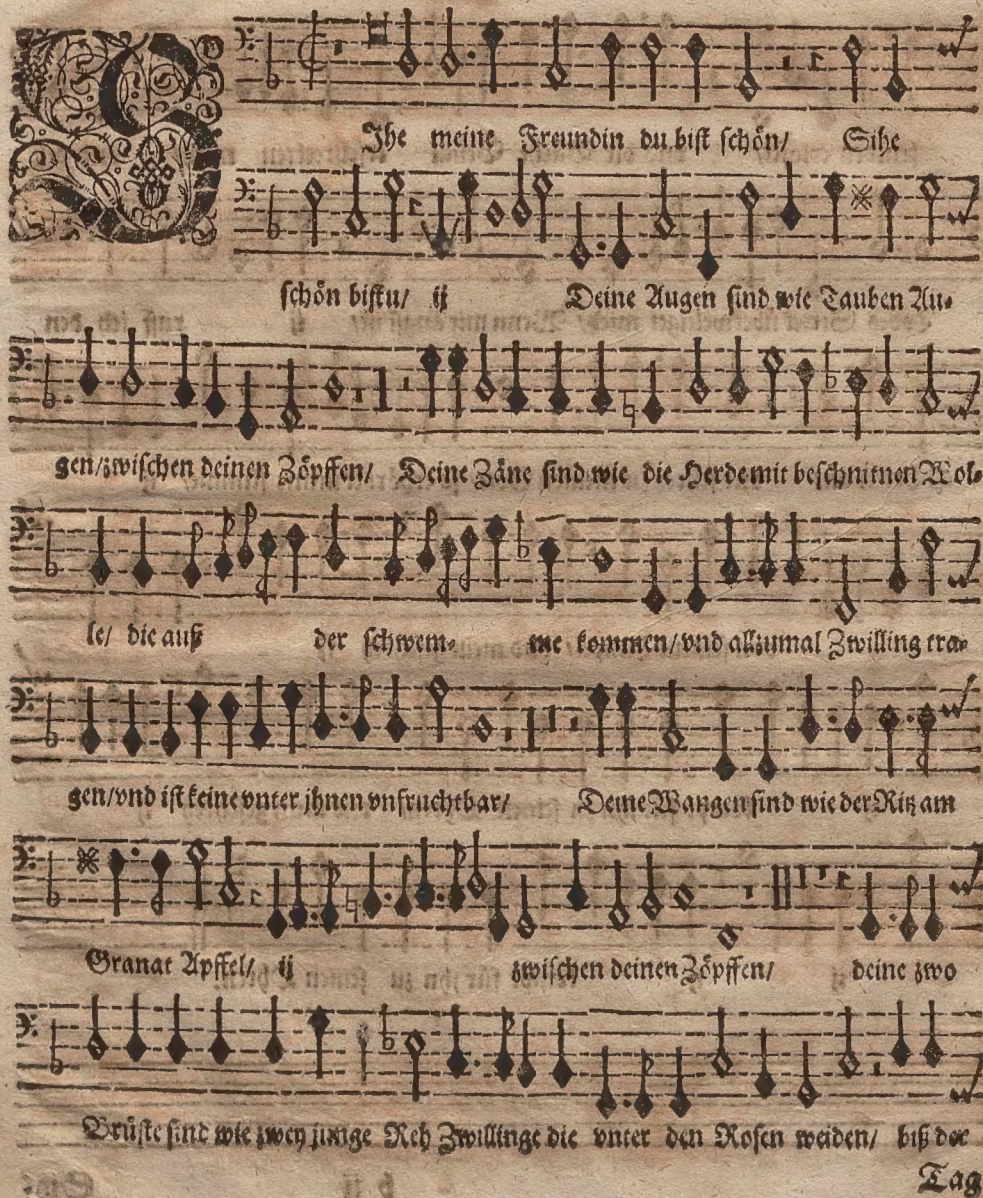 SJhe meine Freundin du bist schön/ Sihe
schön bistu/ ij Deine Augen sind wie Tauben Au-
gen/zwischen deinen Zöpffen/ Deine Zäne sind wie die Herde mit beschnitnen Wol-
le/ die auß der schwem- me kommen/vnd allzumal Zwilling tra-
gen/vnd ist keine vnter jhnen vnfruchtbar/ Deine Wangen sind wie der Ritz am
Granat Apffel/ ij zwischen deinen Zöpffen/ deine zwo
Brüste sind wie zwey junge Reh Zwillinge die vnter den Rosen weiden/ biß der
Tag